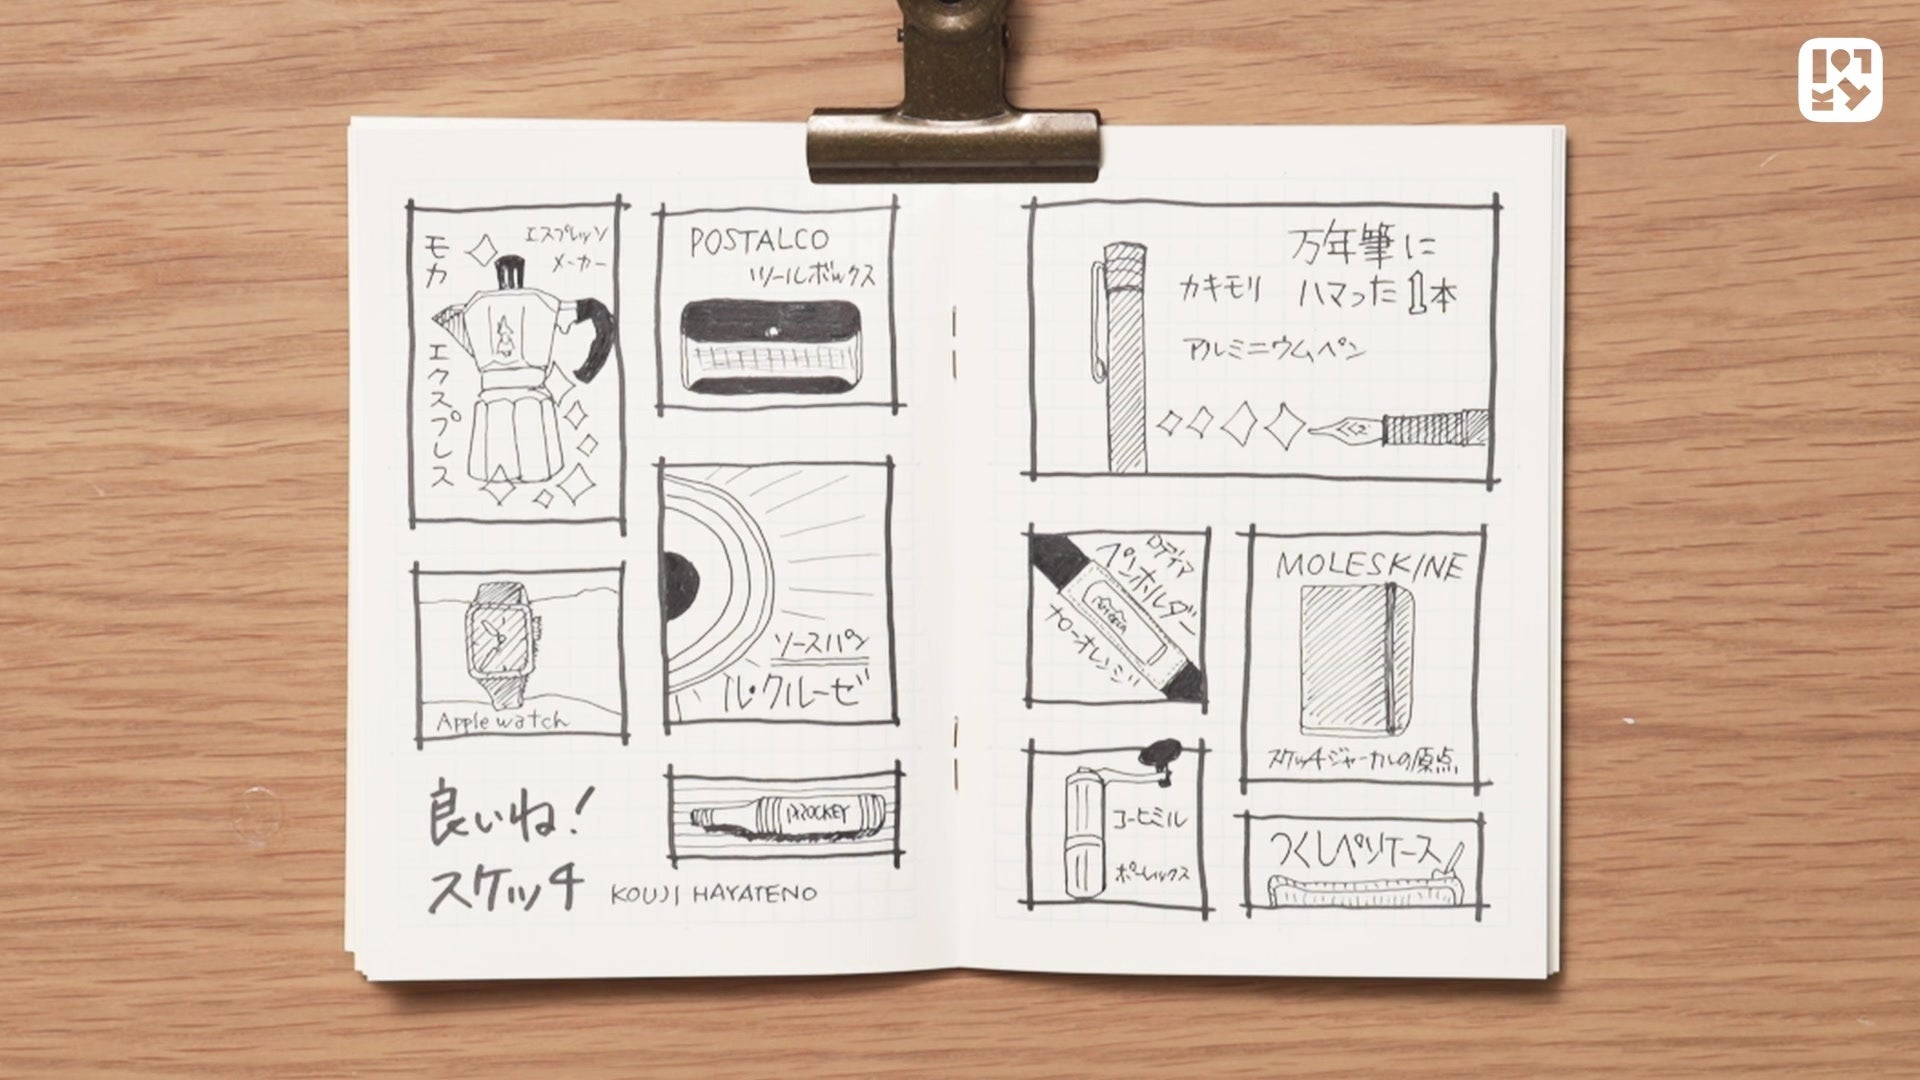 モカ
エクスプレス
エスプレッソ
メーカー
POSTALCO
ツールボックス
Apple watch
ソースパン
ル・クルーゼ
良いね！
スケッチ
KOUJI HAYATENO
PROCKEY
万年筆に
ハマった1本
カキモリ
アルミニウムペン
ロディア
ペンホルダー
ナローオレンジ
MOLESKINE
スケッチジャーナルの原点
コーヒーミル
ポーレックス
つくしペンケース